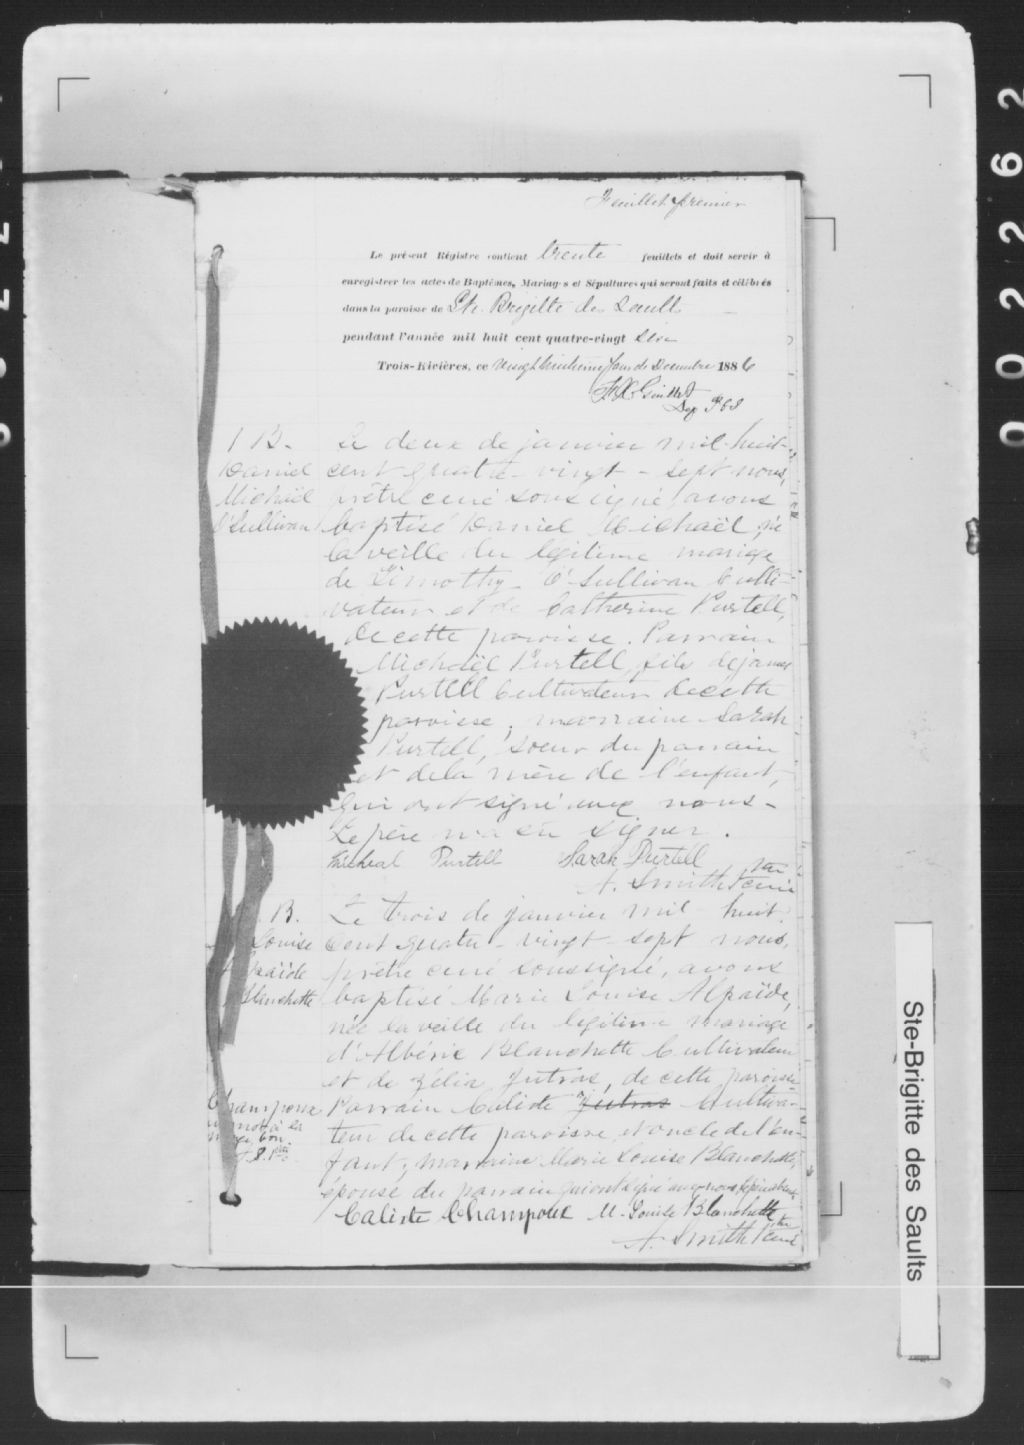 Feuillet premier
Le présent Régistre contient trente feuillets et doit servir à
enregistrer les actes de Baptêmes, Mariages et Sépultures qui seront faits et célébrés
dans la paroisse de Ste. Brigitte des Saults
pendant l'année mil huit cent quatre-vingt
Trois-Rivières, ce vingt huitième jour de Décembre 1886
Dep
1 B.
Daniel
Michaël
O'Sullivan
Le deux de janvier mil-huit-
cent quatre-vingt-sept nous,
prêtre curé soussigné avons
baptisé Daniel Michaël, né
la veille du légitime mariage
de Timothy O'Sullivan Culti-
vateur et de Catherine Purtell,
de cette paroisse. Parrain
Michaël Purtell, fils de James
Purtell Cultivateur de cette
paroisse, marraine Sarah
Purtell, soeur du parrain
et de la mère de l'enfant,
qui ont signé avec nous-
Le père n'a su signer.
Micheal Purtell Sarah Purtell
A. Smith Ptre curé
B.
Louise
Alpaïde
Blanchette
Le trois de janvier mil huit
cent quatre-vingt-sept nous,
prêtre curé soussigné, avons
baptisé Marie Louise Alpaïde,
née la veille du légitime mariage
d'Albéric Blanchette Cultivateur
et de Zélia Jutras, de cette paroisse
Parrain Caliste Jutras Cultiva-
teur de cette paroisse, et oncle de l'en-
fant; marraine Marie Louise Blanchette,
épouse du parrain qui ont signé avec nous
Champoux
mot à la
bon.
Caliste Champoux M. Louise Blanchette
A. Smith Ptre curé
Ste-Brigitte des Saults
0 0 2 2 6 2